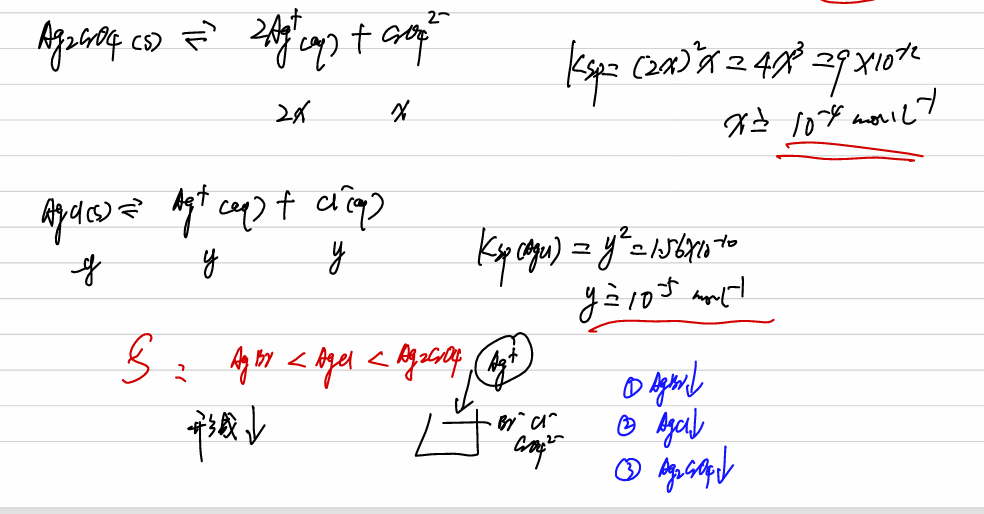 Ag₂CrO₄(s) ⇌ 2Ag⁺(aq) + CrO₄²⁻
2x x
Ksp = (2x)²x = 4x³ = 9×10⁻¹²
x ≐ 10⁻⁴ mol L⁻¹
AgCl(s) ⇌ Ag⁺(aq) + Cl⁻(aq)
y y y
Ksp(AgCl) = y² = 1.56×10⁻¹⁰
y ≐ 10⁻⁵ mol L⁻¹
S: AgBr < AgCl < Ag₂CrO₄
Ag⁺
形成↓
Br⁻ Cl⁻
CrO₄²⁻
① AgBr↓
② AgCl↓
③ Ag₂CrO₄↓